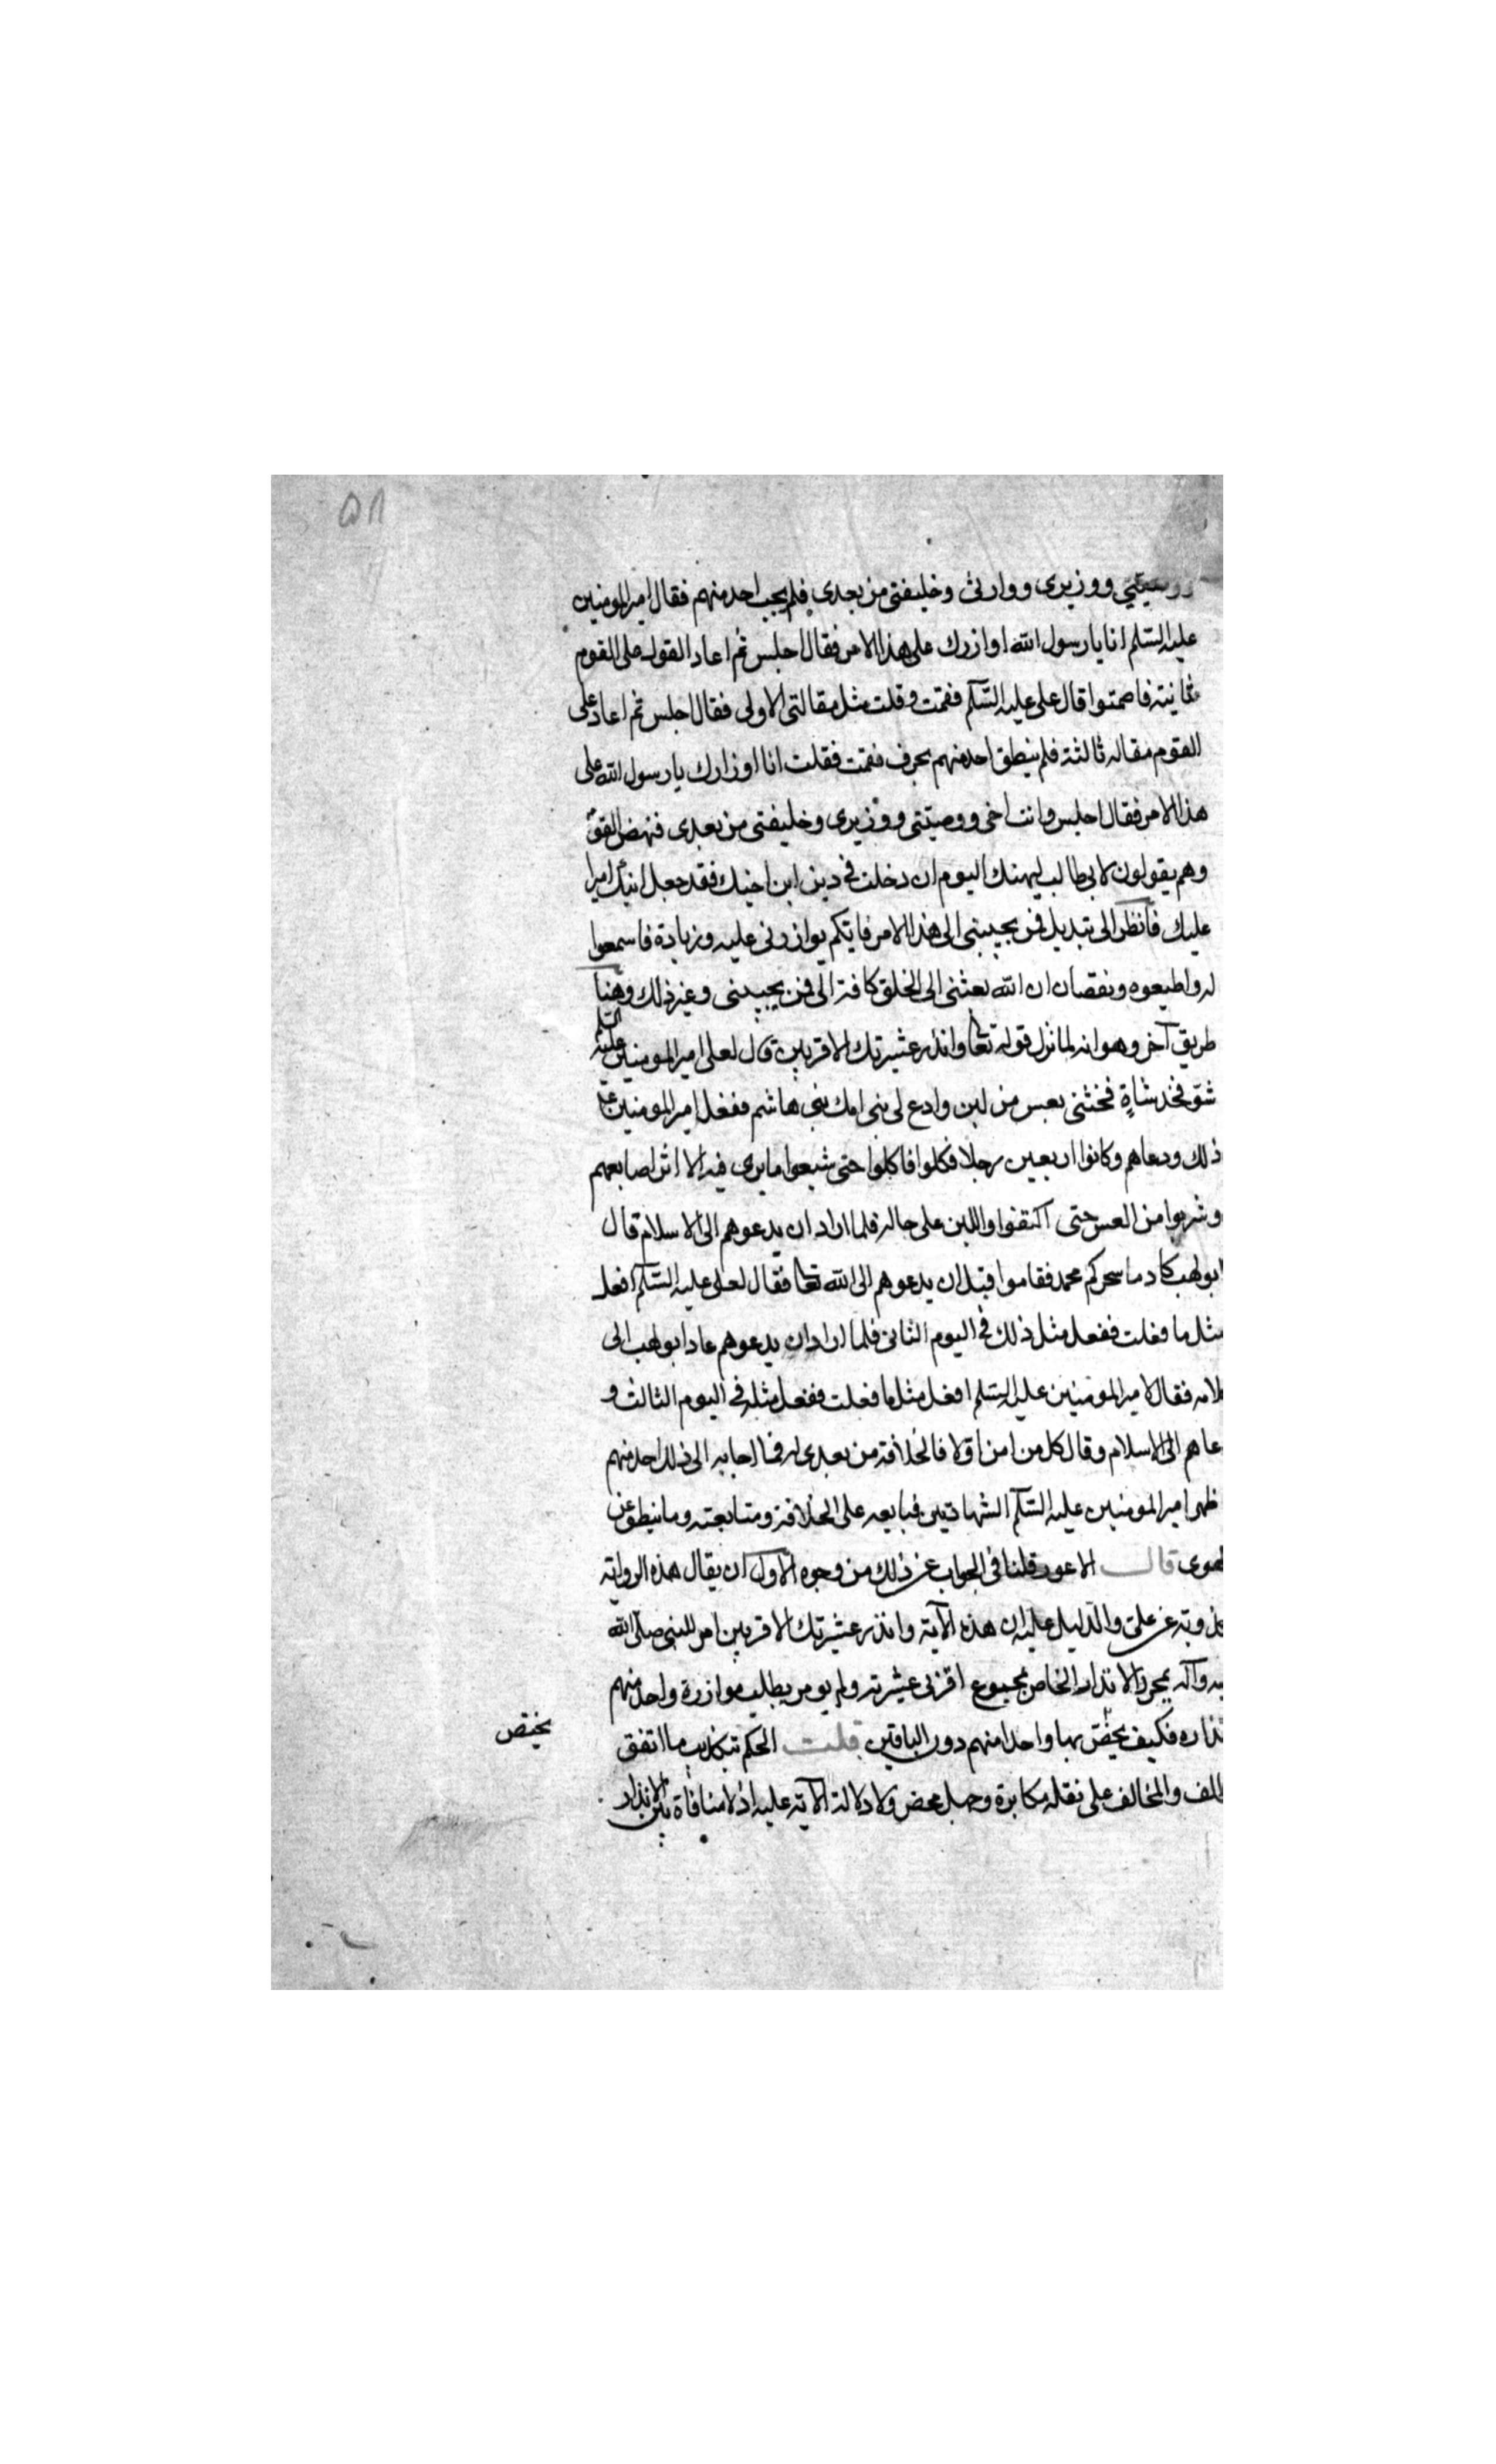 ٥٨
ووصيتي ووزيرى ووارثى وخليفتى من بعدى فلم يجب احد منهم فقال امير المومنين
عليه السلم انا يا رسول الله اوازرك على هذا الامر فقال اجلس ثم اعاد القول على القوم
ثانية فاصمتوا قال على عليه السلم فقمت وقلت مثل مقالتى الاولى فقال اجلس ثم اعاد على
القوم مقاله ثالثة فلم ينطق احد منهم بحرف فقمت فقلت انا اوزارك يا رسول الله على
هذا الامر فقال اجلس وانت اخى ووصيتى ووزيرى وخليفتى من بعدى فنهض القوم
وهم يقولون لابى طالب ليهنك اليوم ان دخلت فى دين ابن اخيك فقد جعل ابنك اميرا
عليك فانظر الى تبديل فمن يجيبنى الى هذا الامر فايكم يوازرنى عليه وزيادة فاسمعوا
له واطيعوه ونقصان ان الله بعثنى الى الخلق كافة الى فمن يجيبنى وغير ذلك وهنا
طريق آخر وهو انه لما نزل قوله تعا وانذر عشيرتك الاقربين قال لعلى امير المومنين عليه السلم
شق فخد شاة فجئنى بعس من لبن وادع لى بنى امك بنى هاشم ففعل امير المومنين ع
ذلك ودعاهم وكانوا اربعين رجلا فكلوا فاكلوا حتى شبعوا ما يرى فيه الا اثر اصابعهم
وشربوا من العس حتى اكتفوا واللبن على حاله فلما اراد ان يدعوهم الى الاسلام قال
ابو لهب كاد ما سحركم محمد فقاموا قبل ان يدعوهم الى الله تعا فقال لعلى عليه السلم افعل
مثل ما فعلت ففعل مثل ذلك فى اليوم الثانى فلما اراد ان يدعوهم عاد ابو لهب الى
لامه فقال لامير المومنين عليه السلم افعل مثل ما فعلت ففعل مثله فى اليوم الثالث و
عاهم الى الاسلام وقال كل من امن اولا فالخلافة من بعدى له فما اجابه الى ذلك احد منهم
ظهر امير المومنين عليه السلم الشهادتين فبايعه على الخلافة ومتابعته وما ينطق عن
لهوى قال الاعور قلنا فى الجواب عن ذلك من وجوه الاول ان يقال هذه الرواية
كذوبة عن على والدليل عليه ان هذه الآية وانذر عشيرتك الاقربين امر للنبى صلى الله
يه وآله بمجرد الانذار الخاص بمجموع اقربى عشيرته ولم يومر بطلب موازرة واحد منهم
نذاره فكيف يخص بها واحدا منهم دون الباقين قلت الحكم بتكذيب ما اتفق
يختص
لف والمخالف على نقله مكابرة وجهل محض ولا دلالة الآية عليه اذ لا منافاة بين الانذار